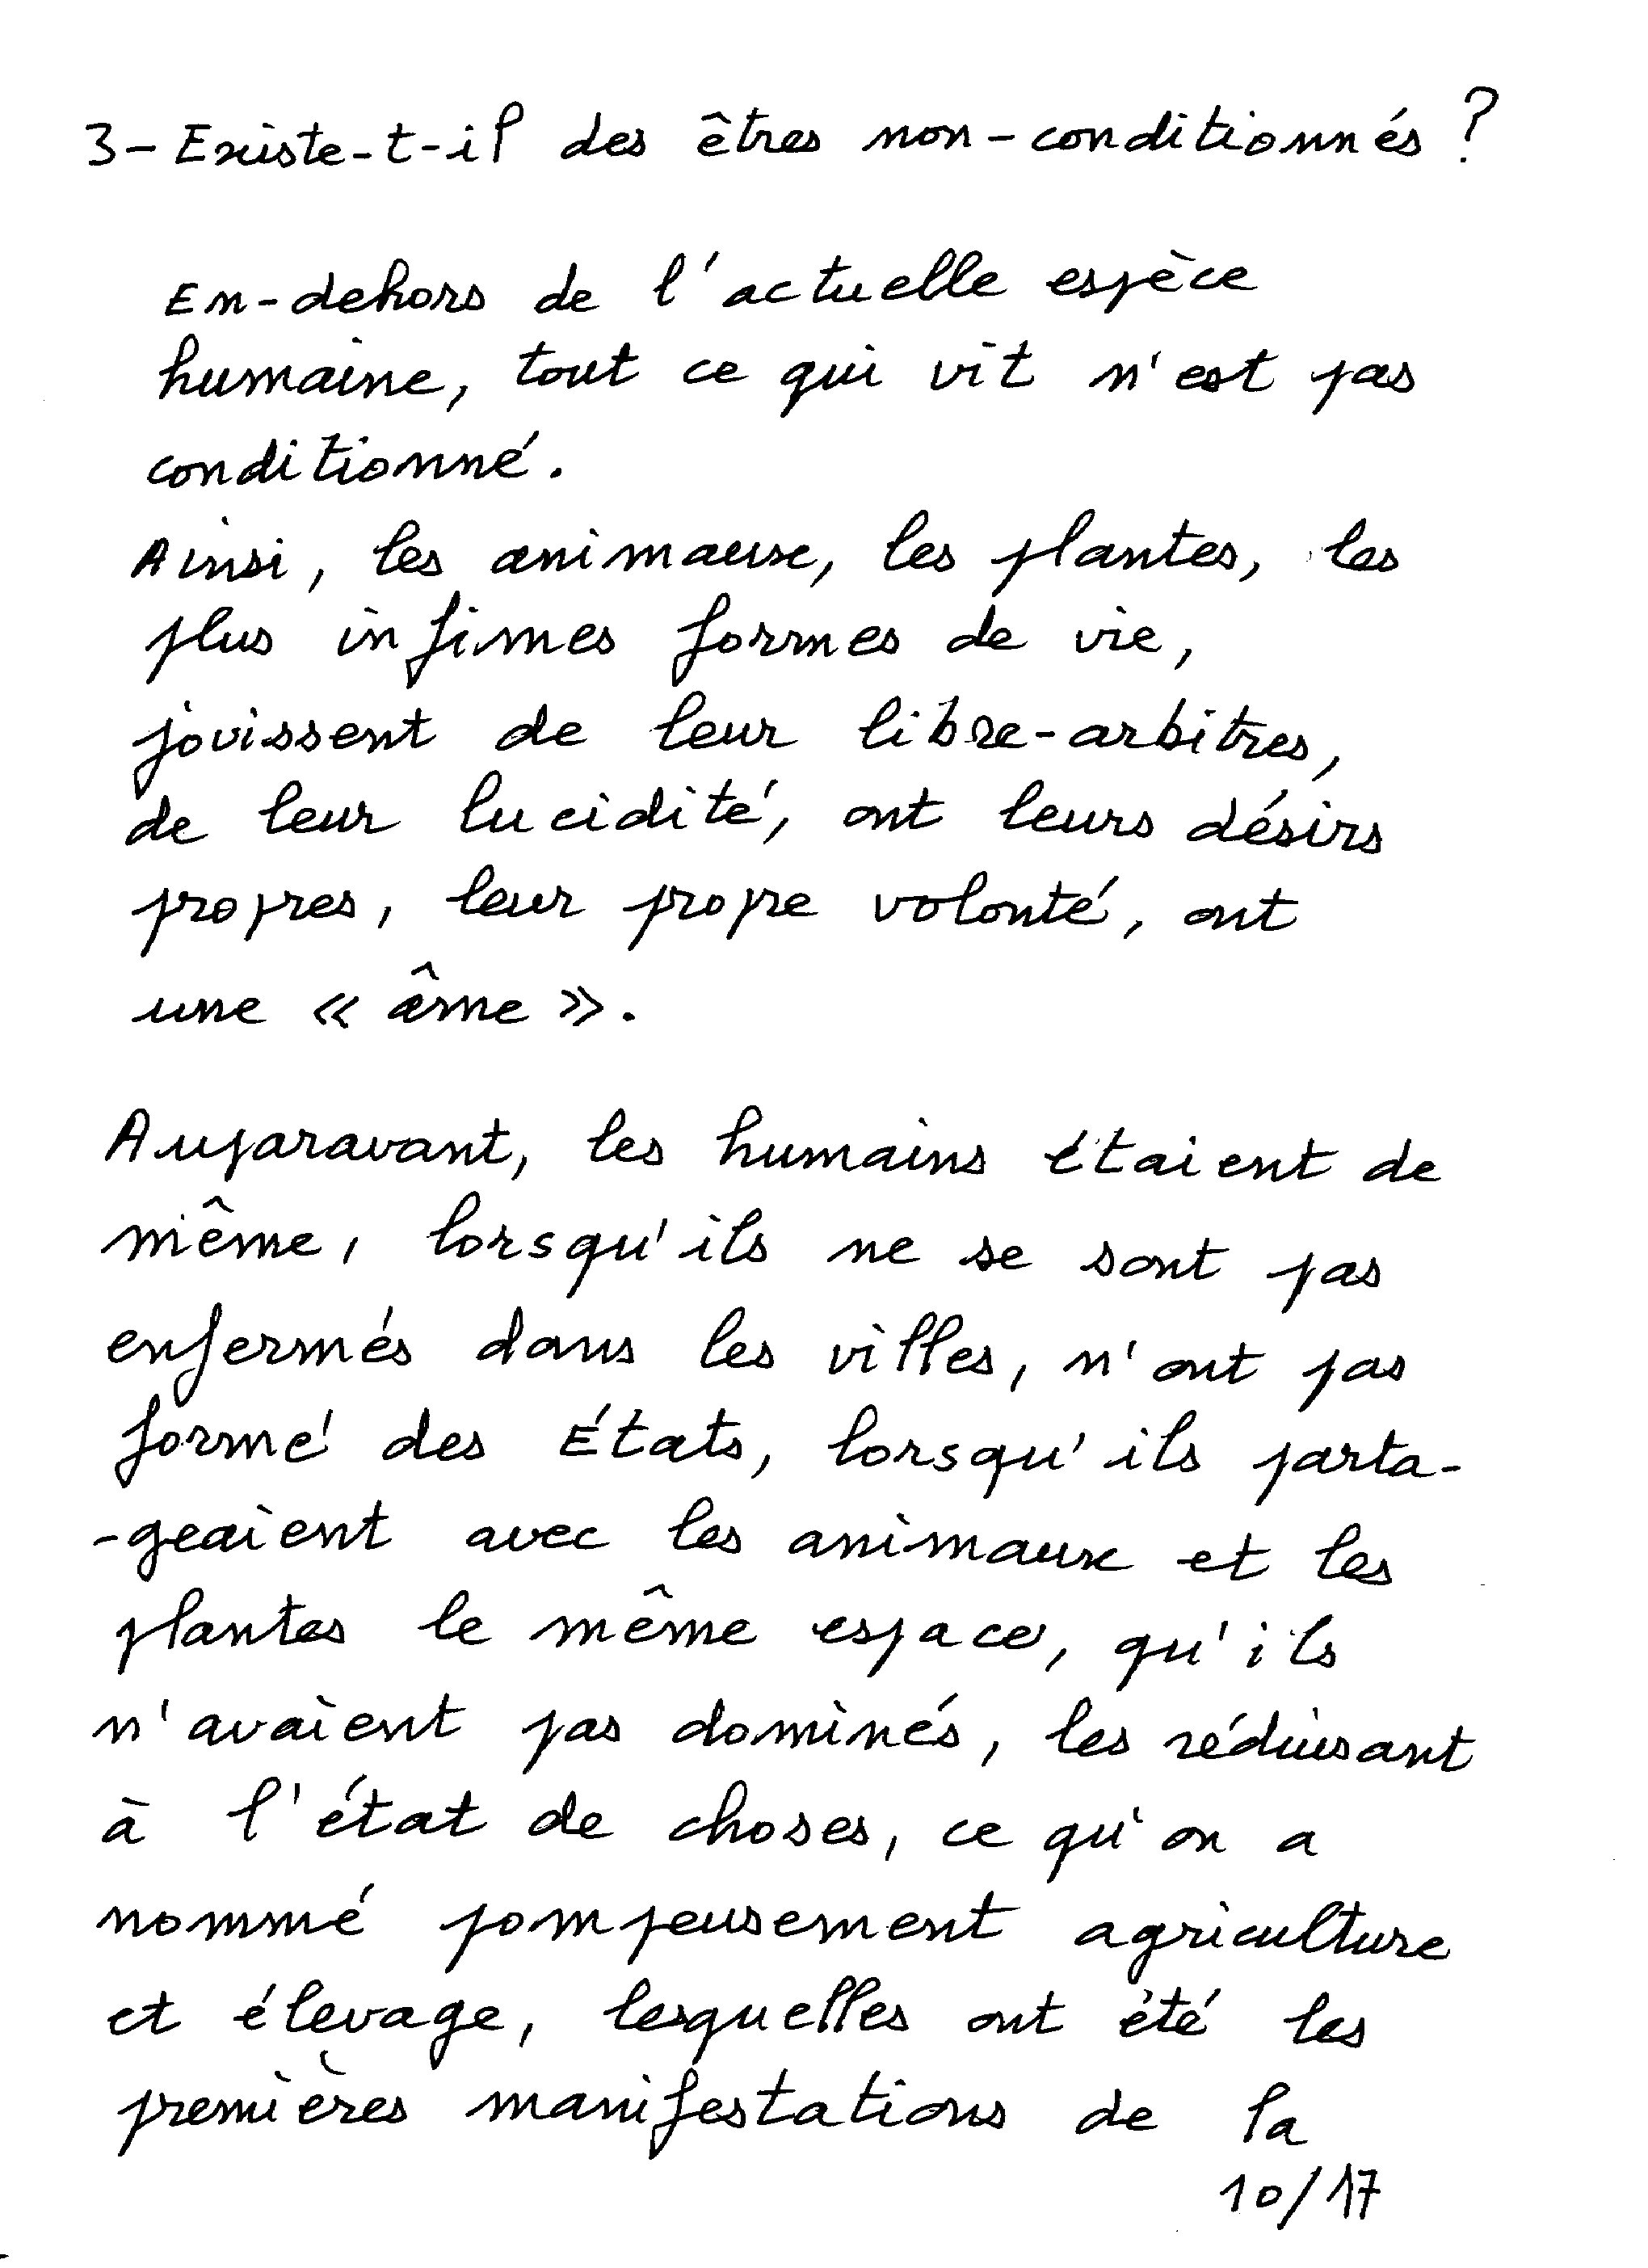 3- Existe-t-il des êtres non-conditionnés ?
En-dehors de l'actuelle espèce
humaine, tout ce qui vit n'est pas
conditionné.
Ainsi, les animaux, les plantes, les
plus infimes formes de vie,
jouissent de leur libre-arbitres,
de leur lucidité, ont leurs désirs
propres, leur propre volonté, ont
une « âme ».
Auparavant, les humains étaient de
même, lorsqu'ils ne se sont pas
enfermés dans les villes, n'ont pas
formé des États, lorsqu'ils parta-
-geaient avec les animaux et les
plantes le même espace, qu'ils
n'avaient pas dominés, les réduisant
à l'état de choses, ce qu'on a
nommé pompeusement agriculture
et élevage, lesquelles ont été les
premières manifestations de la
10/17